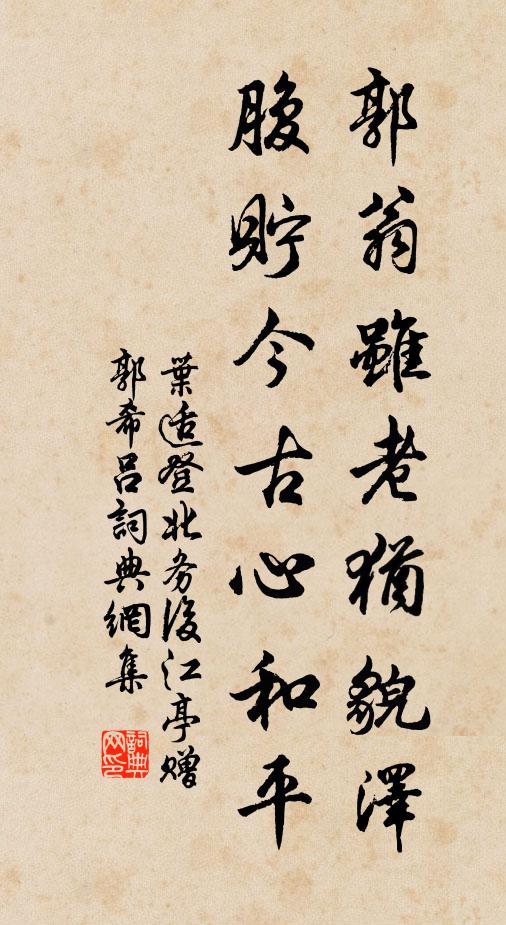 郭翁雖老猶貌澤
腹貯今古心和平
葉适登北务後江亭赠
郭希吕詞典網集
詞典
网印